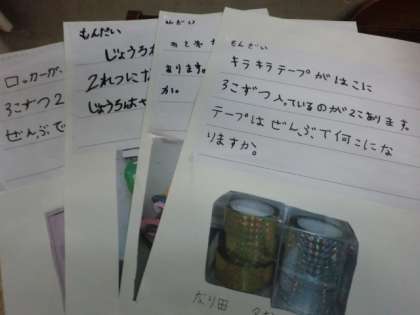 もんだい
ロッカーが、
3こずつ2
ぜんぶで
もんだい
じょうろ
2れつにな
じょうろは
んだい
あります。
か。
もんだい
キラキラテープがはこに
3こずつ入っているのが2こあります。
テープはぜんぶで何こにな
りますか。
なり田